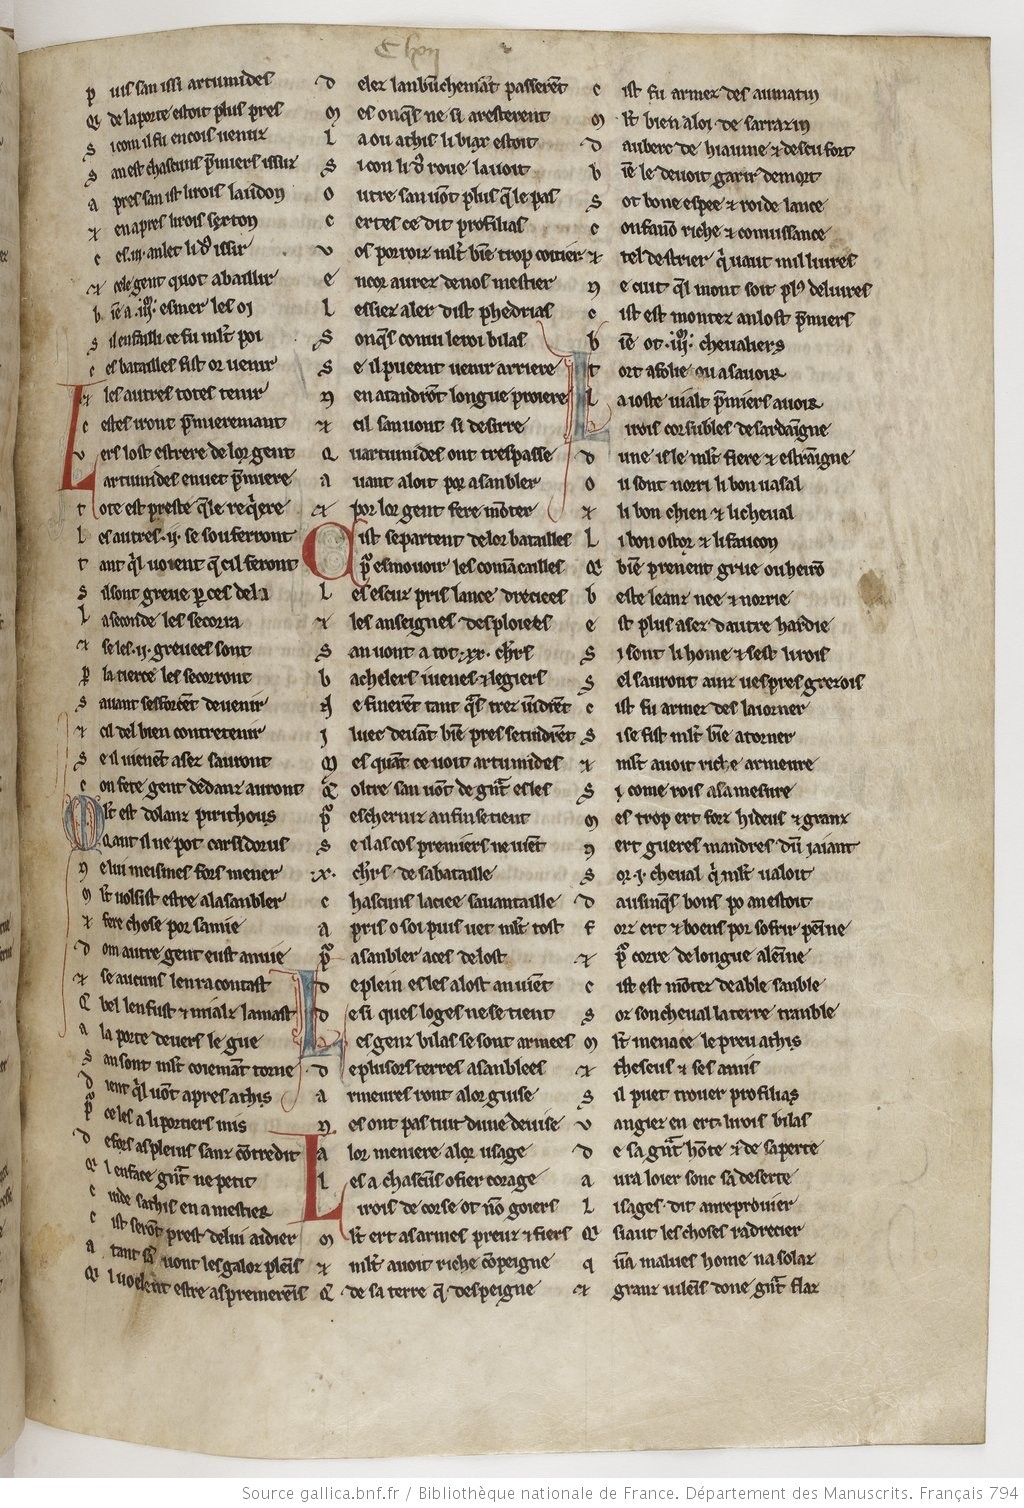 Puis san issi artimides
Q̃ de la porte estoit plus pres
Si com il fu encois venuz
San est chascuns p̃miers issuz
Apres san ist li rois laudon
⁊ en apres li rois sexton
Ces .iii. anlet li dus issir
⁊ cele gent quot a baillir
Biẽ a .iiii. esmer les oi
Sil en failli ce fu ml't poi
Ces batailles fist or venir
⁊ les autres totes tenir
Cestes iront p̃mieremant
Vers lost estrere de lor gent
Lartimides en vet p̃miere
Tote est preste q̃ le req̃ere
Les autres .ii. se souferront
Tant q̃l voient q̃ cil feront
Sil sont greue p̱ ces de la
La seconde les secorra
⁊ se les .ii. greuees sont
P̱ la tierce les secorront
Sauant ses forcent de venir
⁊ cil del bien contretenir
Se il vienent a sez sauront
Con fete gent dedanz auront
Ml't est dolanz pirithous
Q̃ant il ne pot carsidorus
Ne lui meismes fors mener
Ml't volsist estre a lasanbler
⁊ fere chose por samie
Dom autre gent eust anuie
⁊ se aucuns len racontast
Bel len fust ⁊ mialz lamast
A la porte deuers le gue
San sont ml't coiemãt torne
Dient q̃l vont apres athis
P̃ ce les a li portiers mis
Defors as pleins sanz cõtredit
Q̃ l enface grãt ne petit
Cuide sathis en a mestier
Cist serõt prest de lui aidier
A tant san vont les galoz pleins
Q̃ l voelent estre as premereins
Delez lanbuschemãt passerẽt
Mes onq̃s ne si aresterent
La ou athis li biax estoit
Si con li dus roue lauoit
Outre san võt plus q̃ le pas
Certes ce dit profilias
Vos porroiz ml't biẽ trop coitier
Encor aurez de nos mestier
Lessiez aler dist phedrias
Sonq̃s conui le roi bilas
Se il pueent venir arriere
Nen atandrõt longue proiere
⁊ cil san vont si desirre
Q̃artimides ont trespasse
Auant aloit por asanbler
⁊ por lor gent fere mõter
Cist se partent de lor batailles
P̃ esmouoir les comãcailles
Les escuz pris lances dreciees
⁊ les anseignes desploiees
San vont a tot .xx. chrs
Bachelers iuenes ⁊ legiers
Ne finerẽt tant q̃s trez vindrẽt
Iluec deuãt biẽ pres se tindrẽt
Mes quãt ce voit artimides
Q̃ oltre san võt de grãt esles
P̃ eschernir anfin se tient
Se il as cos premiers ne viẽt
.x. chrs de sa bataille
Chascuns laciee sauantaille
A pris o soi puis vet ml't tost
P̃ asanbler a ces de lost
De plein esles a lost an viẽt
De si ques loges ne se tient
Les genz bilas se sont armees
De plusors terres asanblees
Armeures ront a lor guise
Nes ont pas tuit dune deuise
A lor meniere a lor usage
Les a chascũs o fier corage
Li rois de corse ot nõ goiers
Ml't ert as armes preuz ⁊ fiers
⁊ ml't auoit riche cõpeigne
Q̃ de sa terre q̃ despeigne
Cist fu armez des aumatin
Ml't bien a loi de sarrazin
Dauberc de hiaume ⁊ descu fort
Biẽ le deuoit garir de mort
Sot bone espee ⁊ roide lance
Confanõ riche ⁊ conuissance
⁊ tel destrier q̃ vaut mil liures
Ne cuit q̃l mont soit pl9 deliures
Cist est montez an lost p̃miers
Biẽ ot .iiii. cheualiers
Tort a folie ou a sauoir
La ioste vialt p̃miers auoir
Li rois corsubles de sardaigne
Dune isle ml't fiere ⁊ estrãigne
Ou sont norri li bon vasal
⁊ li bon chien ⁊ li cheual
Li bon ostor ⁊ li faucon
Q̃ biẽ prenent grue ou heirõ
Beste leanz nee ⁊ norrie
Est plus asez dautre hardie
Si sont li home ⁊ sest li rois
Sel sauront ainz vespres grezois
Cist fu armez des laiorner
Si se fist ml't biẽ atorner
⁊ ml't auoit riche armeure
Si come rois a sa mesure
Mes trop ert forz hideus ⁊ granz
Nert gueres maindres dũ iaiant
Sor .i. cheual q̃ ml't valoit
Dausinq̃s bons po an estoit
Forz ert ⁊ boens por sofrir peine
⁊ p̃ corre de longue aleine
Cist est mõtez de able sanble
Sor son cheual la terre tranble
Ml't menace le preu athis
⁊ theseus ⁊ ses amis
Sil puet trouer profilias
Vangiez en ert li rois bilas
De sa grãt hõte ⁊ de sa perte
Aura loier sonc sa deserte
Li sages dit an reprouier
Q̃ siaut les choses radrecier
Q̃ ũa malues home na solaz
⁊ granz vileins done grãt flaz
Source gallica.bnf.fr / Bibliothèque nationale de France. Département des Manuscrits. Français 794